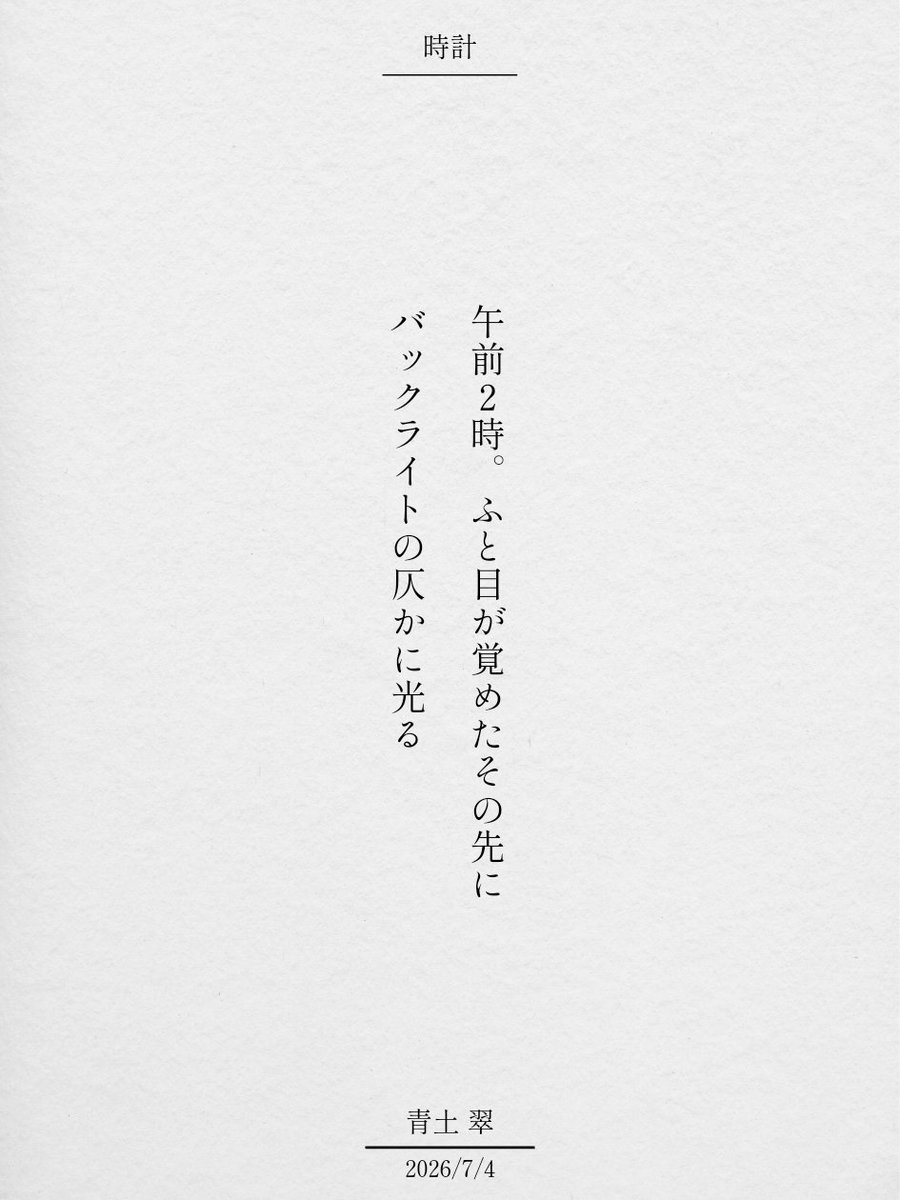 時計
午前2時。ふと目が覚めたその先に
バックライトの仄かに光る
青土 翠
2026/7/4